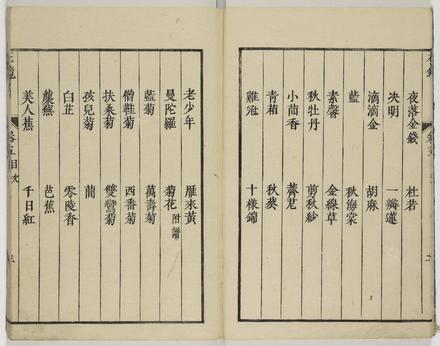 夜落金錢 杜若
決明 一瓣蓮
滴滴金 胡麻
藍 秋海棠
素馨 金線草
秋牡丹 剪秋紗
小茴香 薺苨
青葙 秋葵
雞冠 十樣錦
老少年 雁來黃
曼陀羅 菊花 附譜
藍菊 萬壽菊
僧鞋菊 西番菊
扶桑菊 雙鸞菊
孩兒菊 蘭
白芷 零陵香
蘪蕪 芭蕉
美人蕉 千日紅